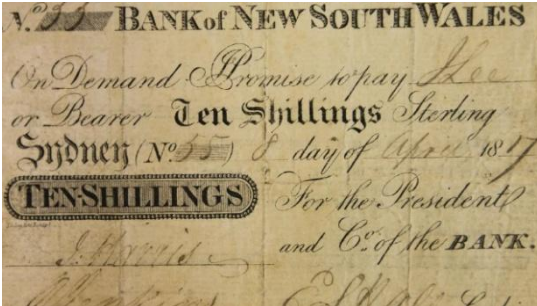 No. 55 BANK of NEW SOUTH WALES
On Demand I Promise to pay J Lee
or Bearer Ten Shillings Sterling
Sydney (No 55) 8 day of April 1817
TEN-SHILLINGS For the President
and Co. of the BANK.
J. Harris
Jenkins